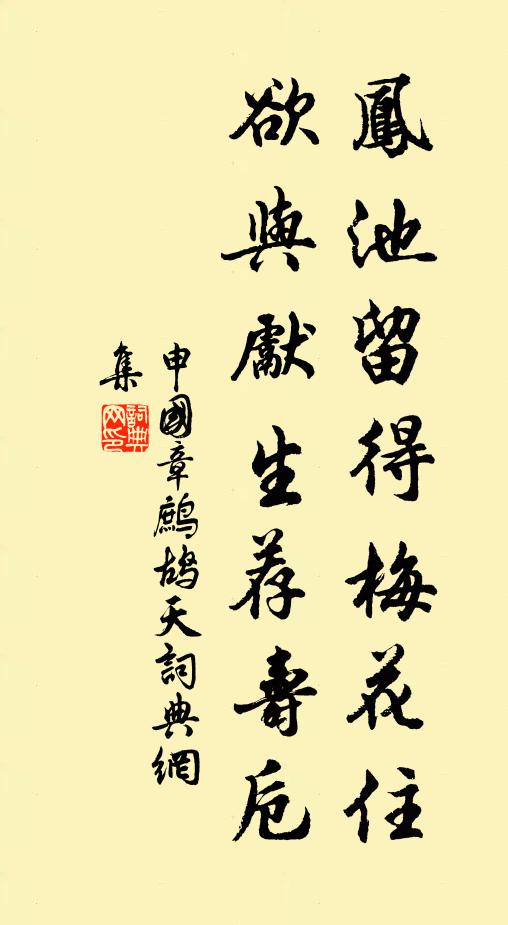 鳳池留得梅花住
欲與獻生荐壽卮
申國章鷓鴣天詞典網
集
詞典網印